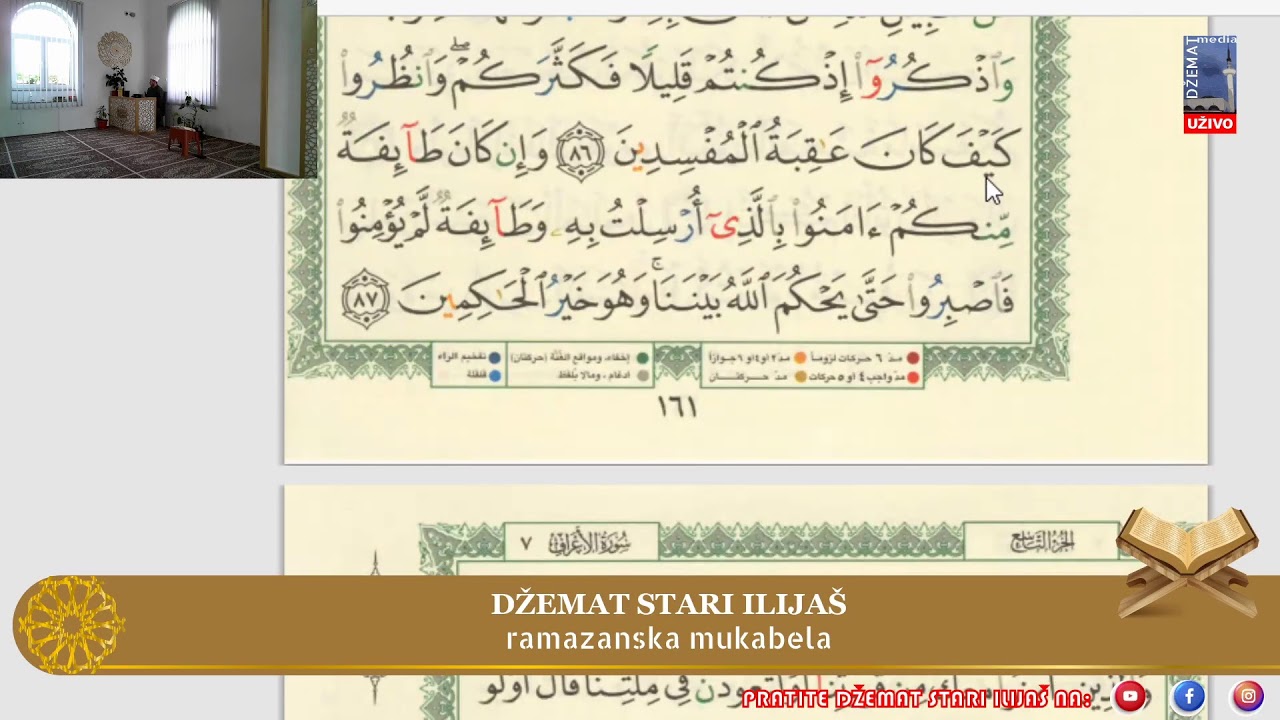 وَٱذْكُرُوٓا۟ إِذْ كُنتُمْ قَلِيلًا فَكَثَّرَكُمْ ۖ وَٱنظُرُوا۟
كَيْفَ كَانَ عَـٰقِبَةُ ٱلْمُفْسِدِينَ ٨٦ وَإِن كَانَ طَآئِفَةٌ
مِّنكُمْ ءَامَنُوا۟ بِٱلَّذِىٓ أُرْسِلْتُ بِهِۦ وَطَآئِفَةٌ لَّمْ يُؤْمِنُوا۟
فَٱصْبِرُوا۟ حَتَّىٰ يَحْكُمَ ٱللَّهُ بَيْنَنَا ۚ وَهُوَ خَيْرُ ٱلْحَـٰكِمِينَ ٨٧
مدّ ٦ حركات لزوماً مدّ ٢ او ٤ او ٦ جوازاً إخفاء، ومواقع الغُنَّة (حركتان) تفخيم الراء
مدّ واجب ٤ او ٥ حركات مدّ حركتان ادغام، ومالا يُلفَظ قلقلة
١٦١
الجزء التاسع سورة الأعراف ٧
DŽEMAT media
UŽIVO
DŽEMAT STARI ILIJAŠ
ramazanska mukabela
لَتَعُودُنَّ فِى مِلَّتِنَا قَالَ أَوَلَوْ
PRATITE DŽEMAT STARI ILIJAŠ NA: